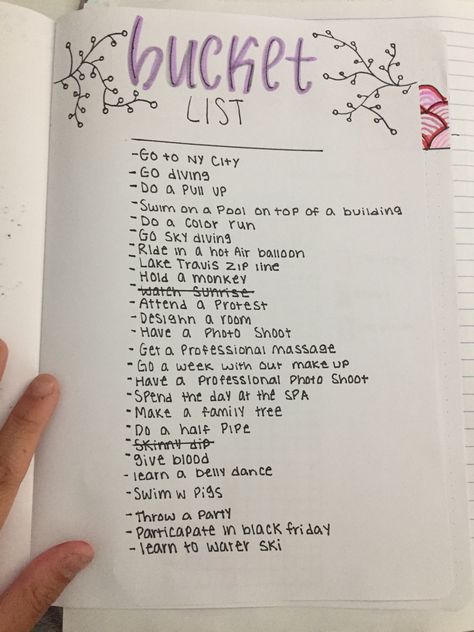 bucket
LIST
- Go to NY City
- Go diving
- Do a Pull up
- Swim on a Pool on top of a building
- Do a color run
- Go SKY diving
- Ride in a hot Air balloon
- Lake Travis zip line
- Hold a monkey
- Watch Sunrise
- Attend a Protest
- Designn a room
- Have a Photo Shoot
- Get a Professional massage
- Go a week with out make up
- Have a Professional Photo Shoot
- Spend the day at the SPA
- Make a family tree
- Do a half Pipe
- Skinny dip
- give blood
- learn a belly dance
- Swim w Pigs
- Throw a Party
- Particapate in black friday
- learn to water ski